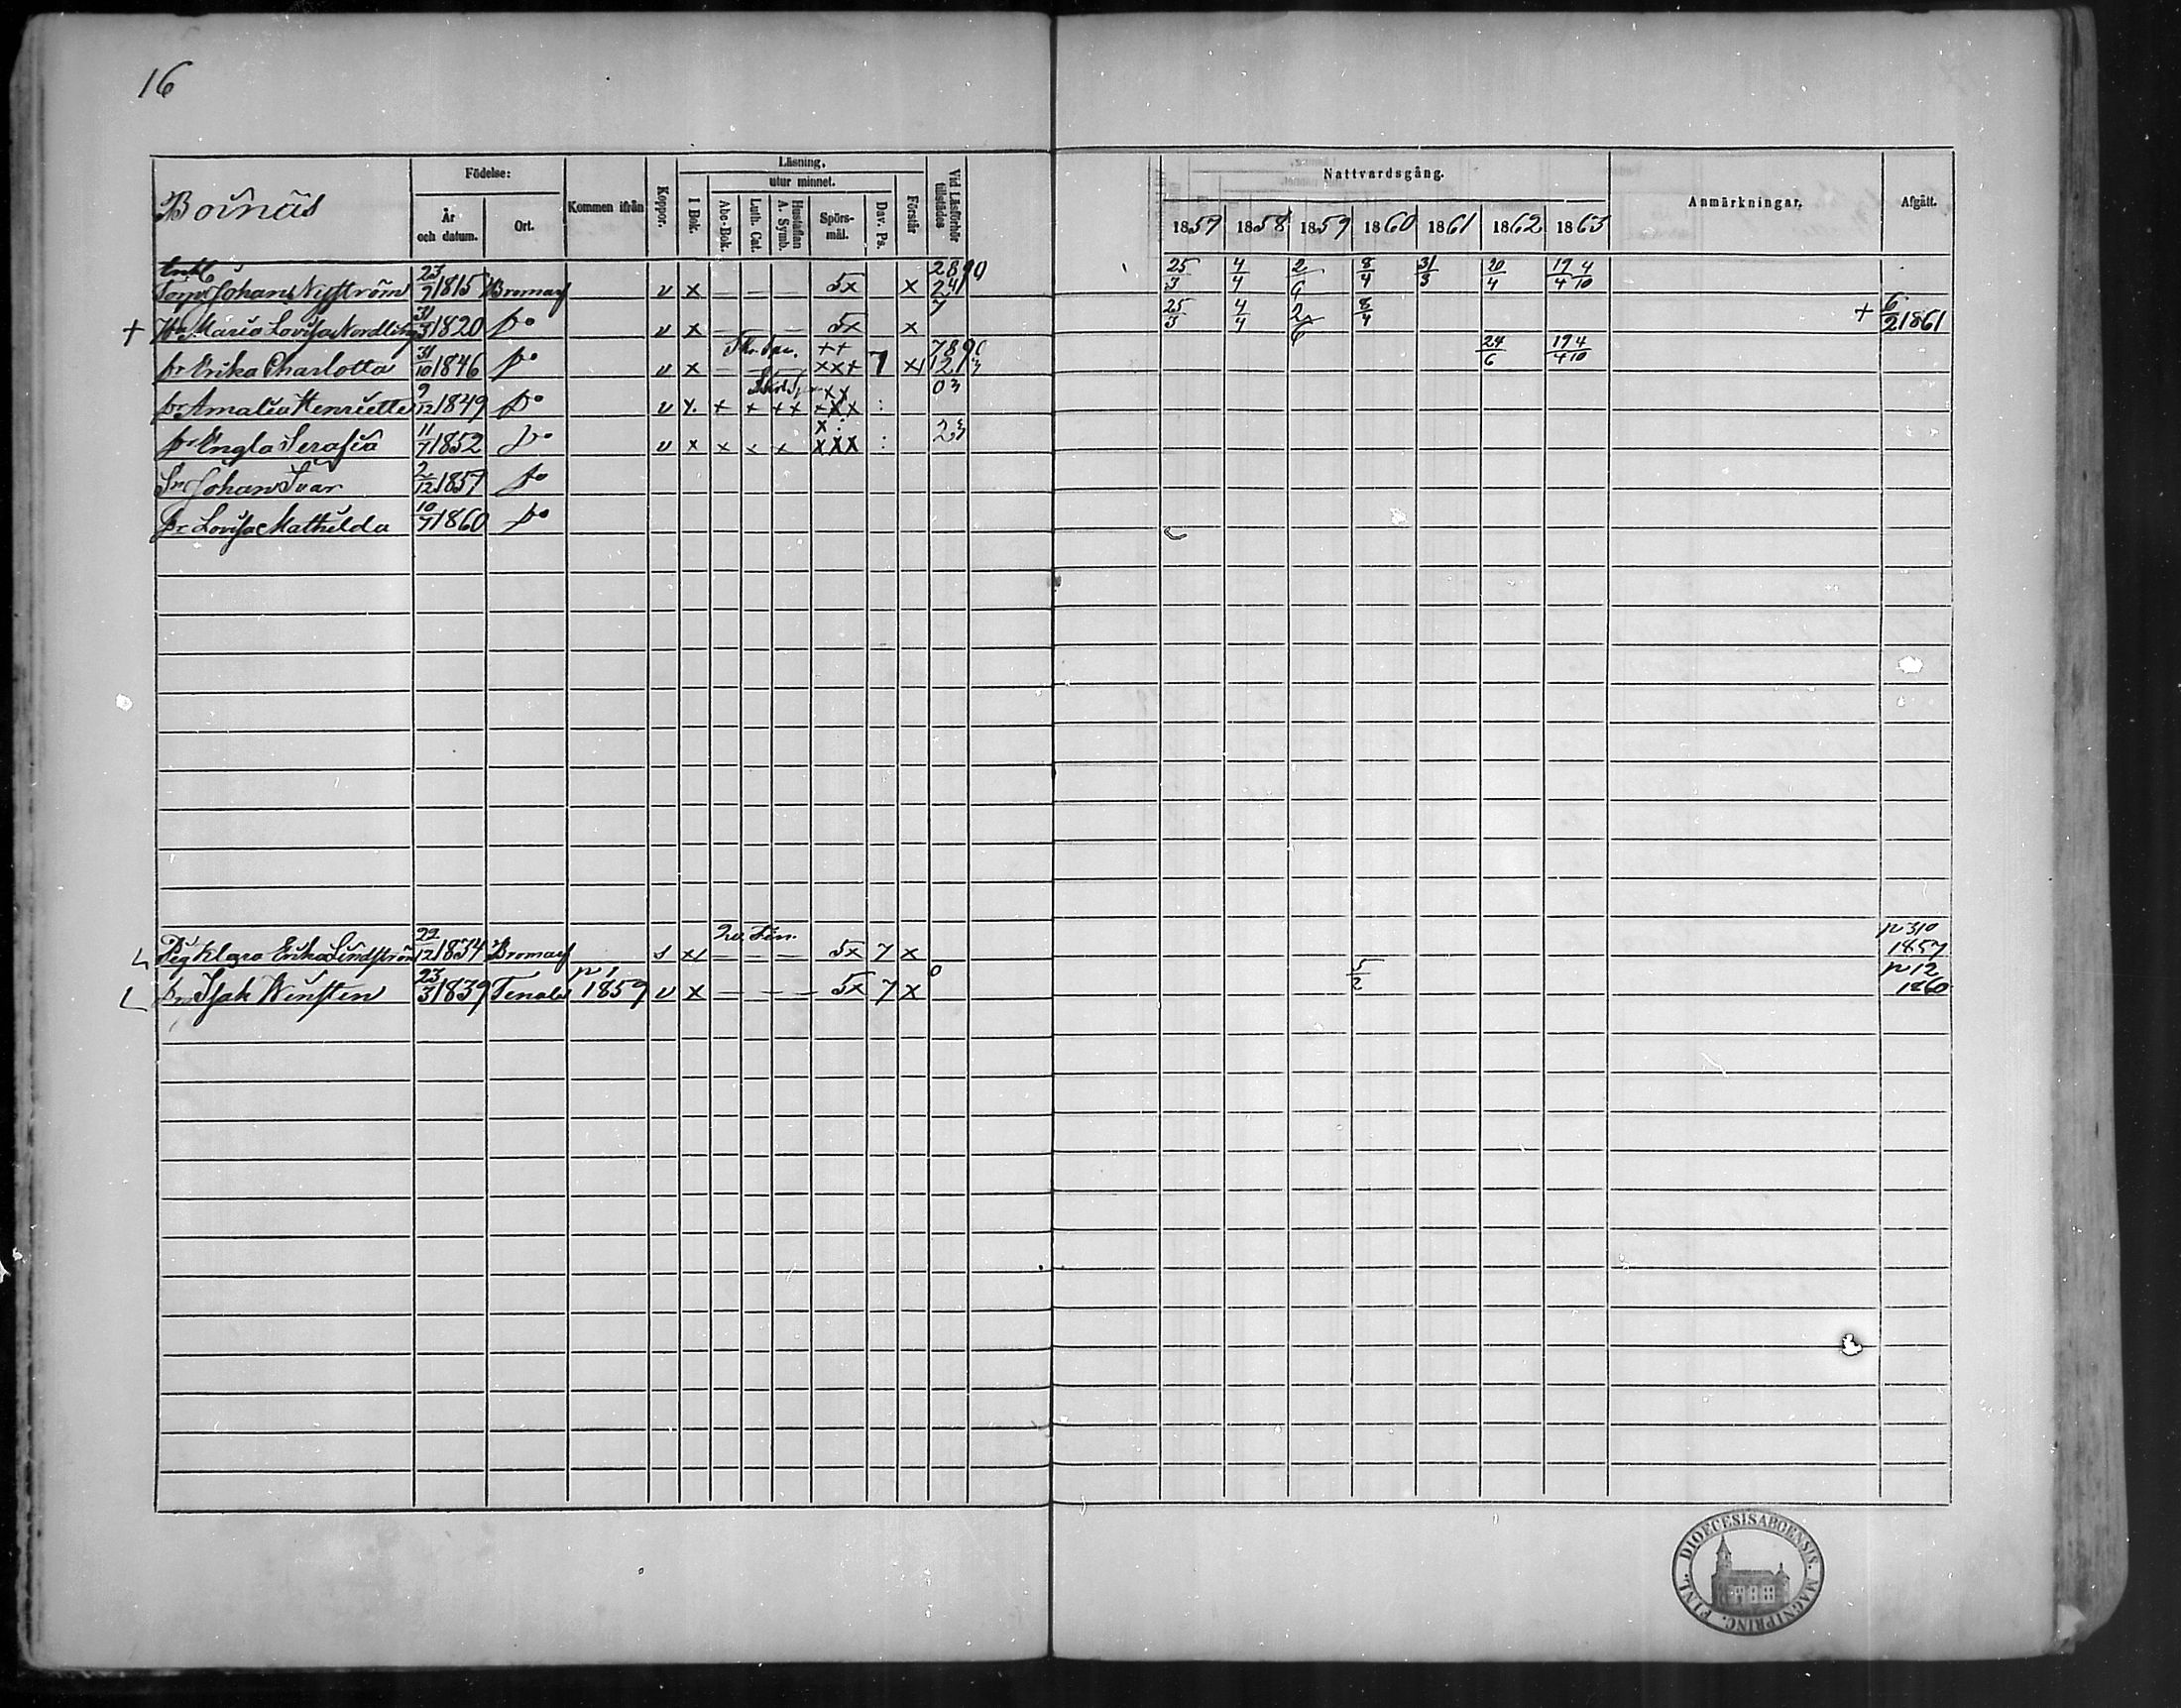 16
Födelse: Kommen ifrån Koppor. Läsning. Vid Läsförhör tillstädes Nattvardsgång. Anmärkningar. Afgått.
utur minnet.
Boinäs År och datum. Ort. I Bok. Abc-Bok. Luth. Cat. Hustaflan A. Symb. Spörsmål. Dav. Ps. Förstår 1857 1858 1859 1860 1861 1862 1863
Enkl
Torp. Johan Nyström 23/7 1815 Bromarf v x — — — 5x x 2890 241 25/3 4/4 2/4 8/4 31/3 20/4 19/4 4/10
+ H. Maria Lovisa Nordling 31/3 1820 Do v x — — — 5x x 7 25/3 4/4 2/6 8/4 + 6/2 1861
Dr Erika Charlotta 31/10 1846 Do v x — — — ++ xxx 7 x 789 24/6 19/4 4/10
Dr Amalia Henriette 9/12 1849 Do v x + + ++ xx +xx : 03
Dr Engla Serafia 11/7 1852 Do v x x x x x : xxx : 23
Sn Johan Ivar 2/12 1857 Do
Dr Lovisa Mathilda 10/7 1860 Do
Pig Klara Erika Lindström 22/12 1834 Bromarf s x — — — 5x 7 x p 310 1857
Dr Isak Winsten 23/3 1839 Tenala p 1 1859 v x — — — 5x 7 x 0 5/2 p 12 1860
DIOECESIS ABOENSIS. MAGNI PRINC. FINL.